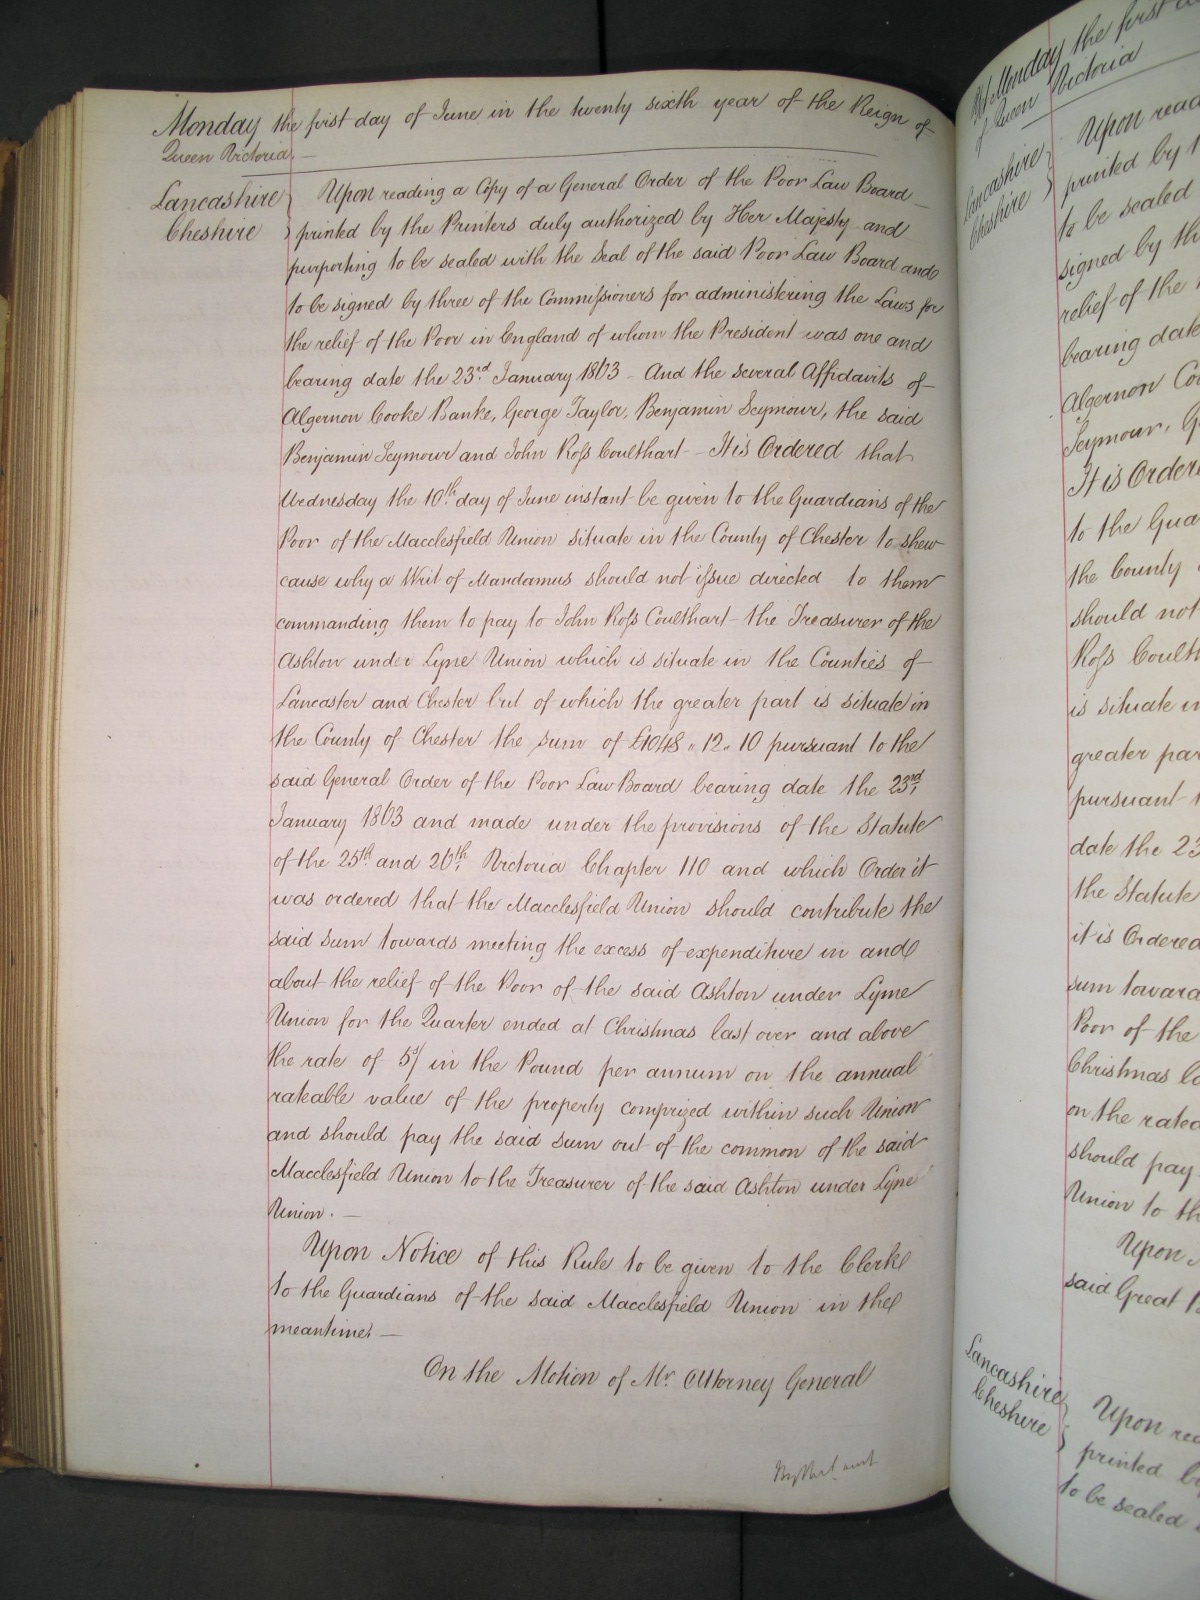 Monday the first day of June in the twenty sixth year of the Reign of
Queen Victoria. —
Lancashire
Cheshire
Upon reading a Copy of a General Order of the Poor Law Board
printed by the Printers duly authorized by Her Majesty and
purporting to be sealed with the Seal of the said Poor Law Board and
to be signed by three of the Commissioners for administering the Laws for
the relief of the Poor in England of whom the President was one and
bearing date the 23rd January 1863 – And the several Affidavits of
Algernon Cooke Banke, George Taylor, Benjamin Seymour, the said
Benjamin Seymour and John Ross Coulthart – It is Ordered that
Wednesday the 10th day of June instant be given to the Guardians of the
Poor of the Macclesfield Union situate in the County of Chester to shew
cause why a Writ of Mandamus should not issue directed to them
commanding them to pay to John Ross Coulthart the Treasurer of the
Ashton under Lyne Union which is situate in the Counties of
Lancaster and Chester but of which the greater part is situate in
the County of Chester the sum of £1048 „ 12 „ 10 pursuant to the
said General Order of the Poor Law Board bearing date the 23rd
January 1863 and made under the provisions of the Statute
of the 25th and 26th Victoria Chapter 110 and which Order it
was ordered that the Macclesfield Union should contribute the
said sum towards meeting the excess of expenditure in and
about the relief of the Poor of the said Ashton under Lyne
Union for the Quarter ended at Christmas last over and above
the rate of 5s/ in the Pound per annum on the annual
rateable value of the property comprized within such Union
and should pay the said sum out of the common of the said
Macclesfield Union to the Treasurer of the said Ashton under Lyne
Union. —
Upon Notice of this Rule to be given to the Clerk
to the Guardians of the said Macclesfield Union in the
meantime. —
On the Motion of Mr. Attorney General
Monday the first
of Queen Victoria
Lancashire
Cheshire
Upon
printed by
to be sealed
signed by
relief of the
bearing date
Algernon
Seymour,
It is
to the
the County
should not
Ross
is situate
greater
pursuant
date the 23
the Statute
it is Ordered
sum
Poor of the
Christmas
on the
should pay
Union to
Upon
said Great
Lancashire
Cheshire
Upon
printed
to be sealed